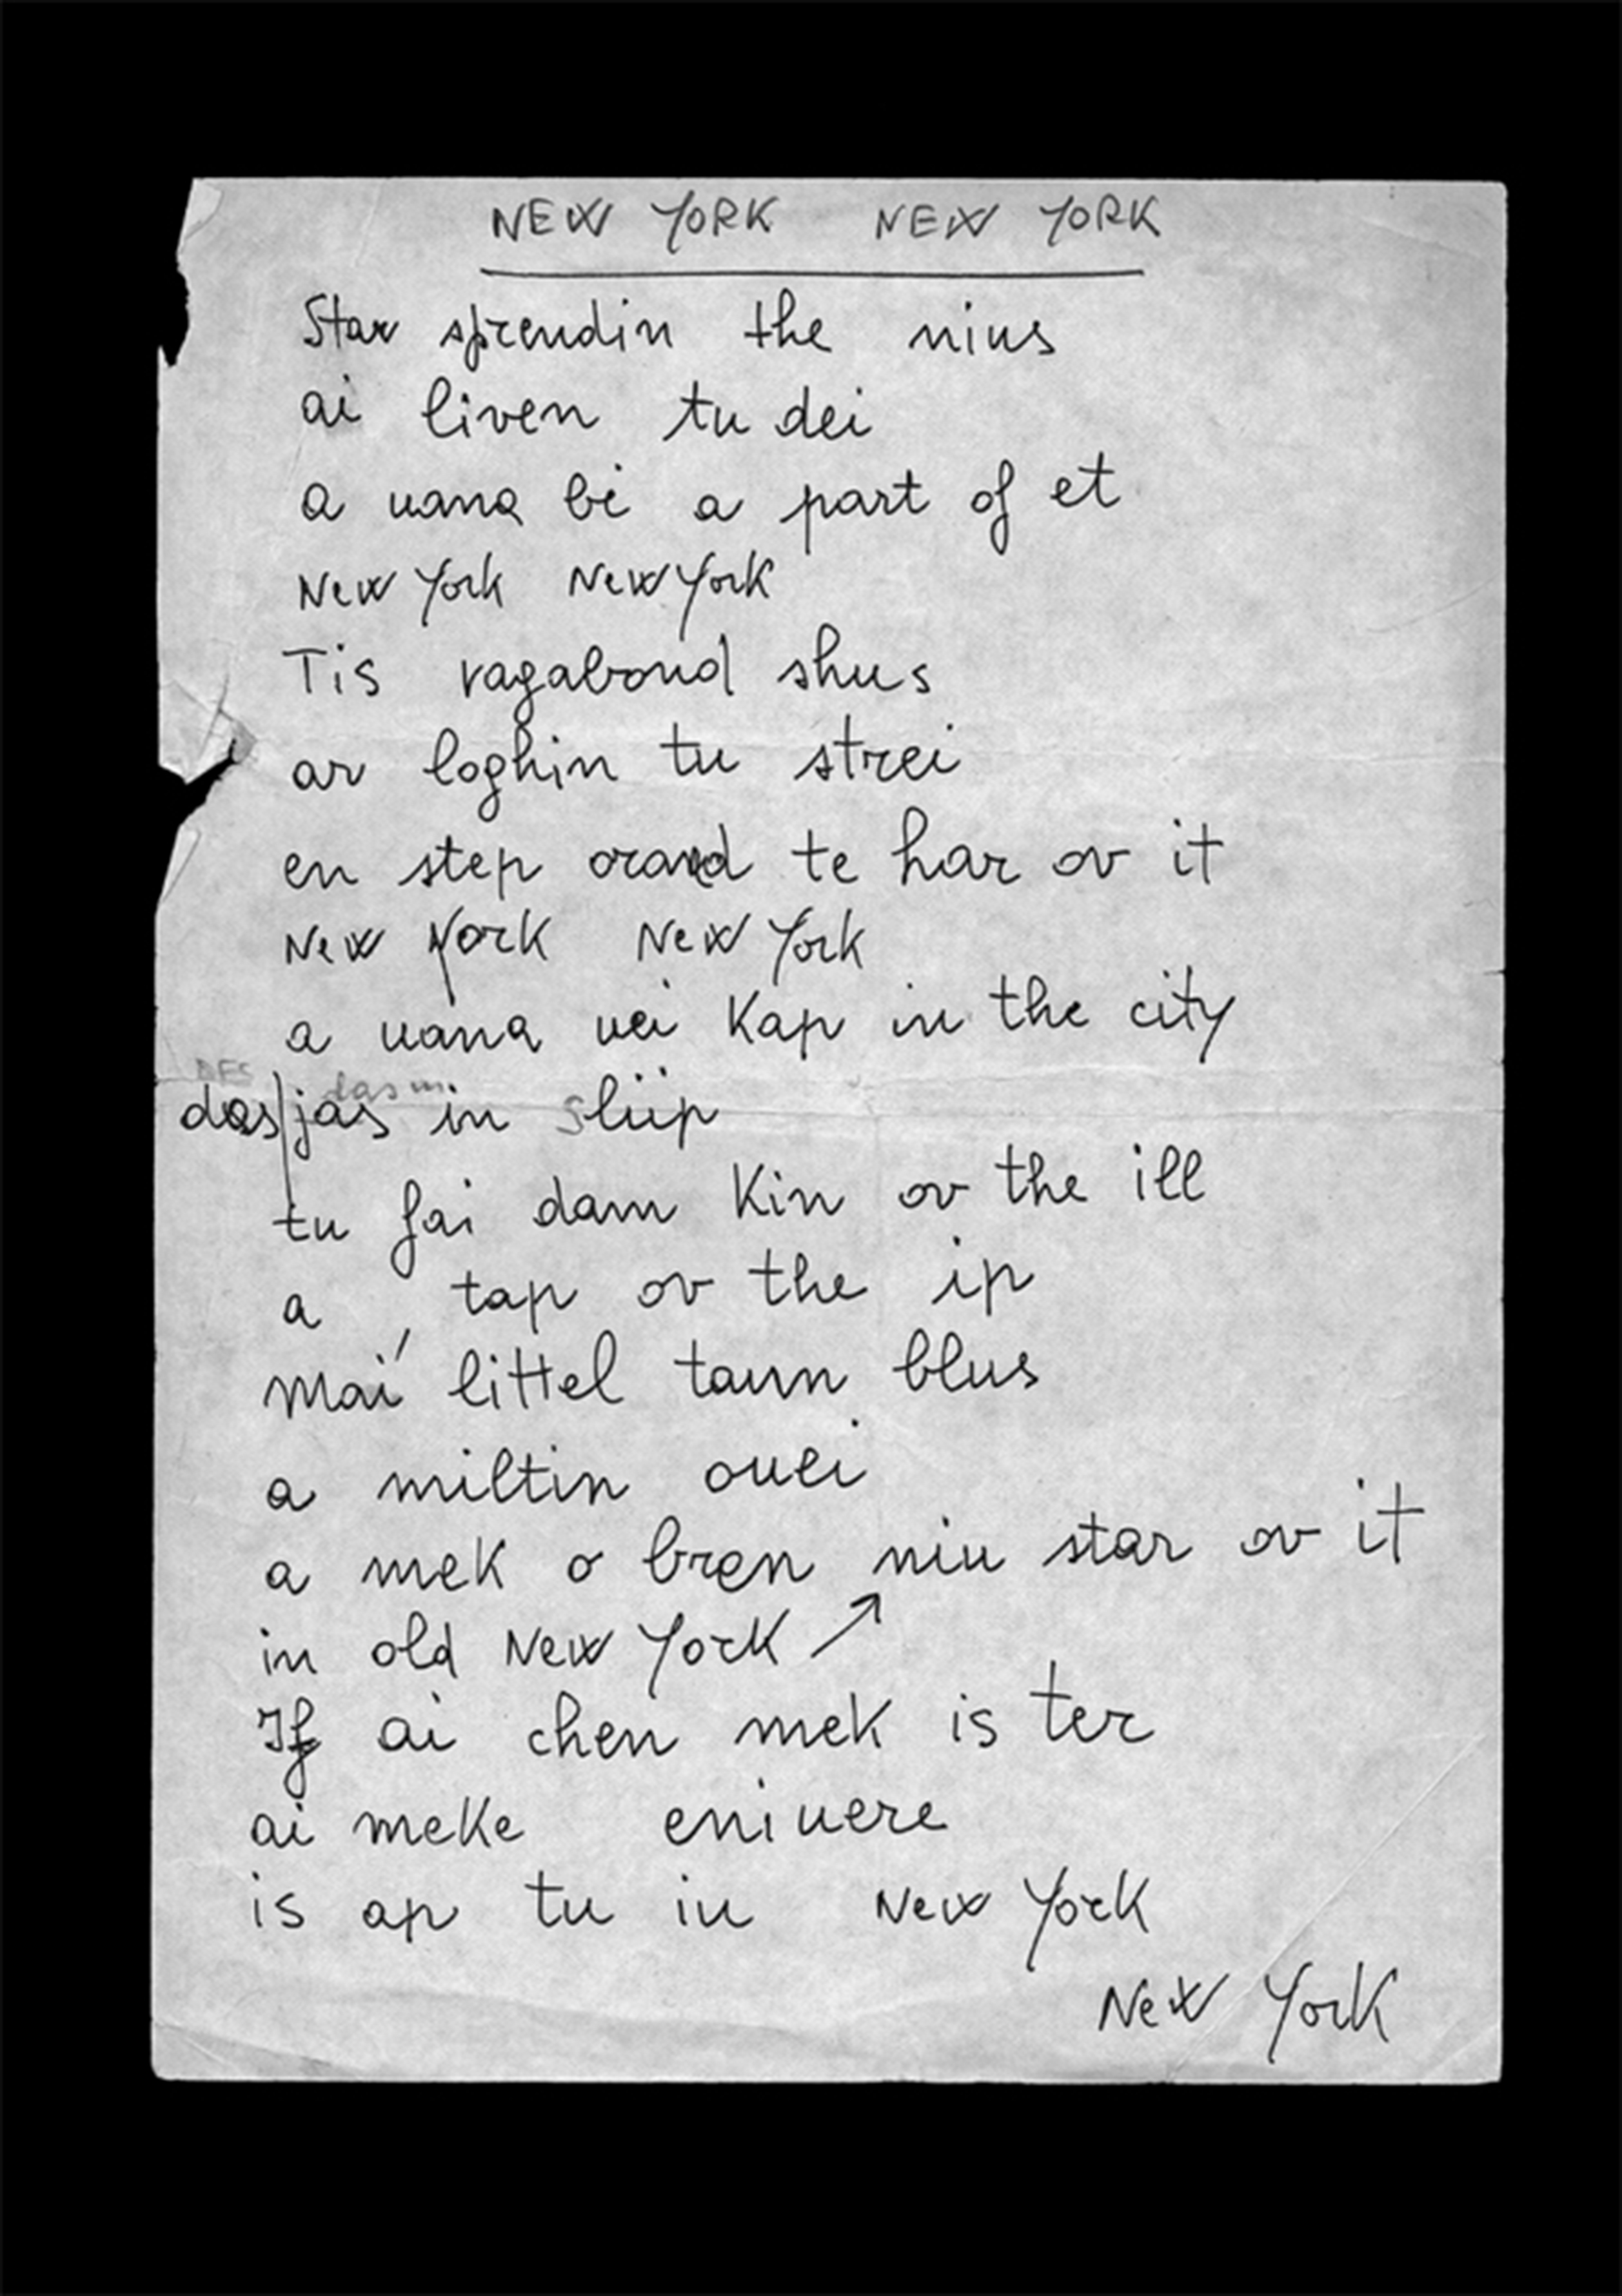 NEW YORK NEW YORK
Star sprendin the nius
ai liven tu dei
a uana bi a part of et
New York New York
Tis vagabond shus
ar loghin tu strei
en step orand te har ov it
New York New York
a uana uei kap in the city
DES das in
das/jas in sliip
tu fai dam kin ov the ill
a tap ov the ip
mai littel taun blus
a miltin ouei
a mek o bren niu star ov it
in old New York ↗
If ai chen mek is ter
ai meke eniuere
is ap tu iu New York
New York